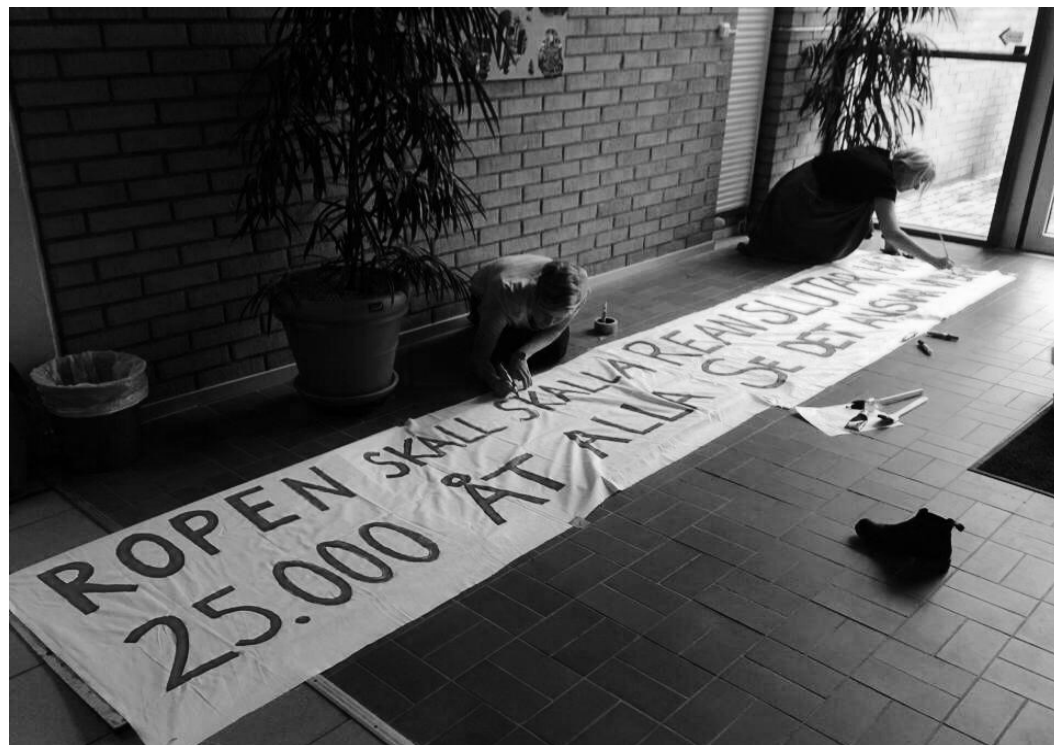 ROPEN SKALL SKALLA REAN SLUTAR
25.000 ÅT ALLA SE DET